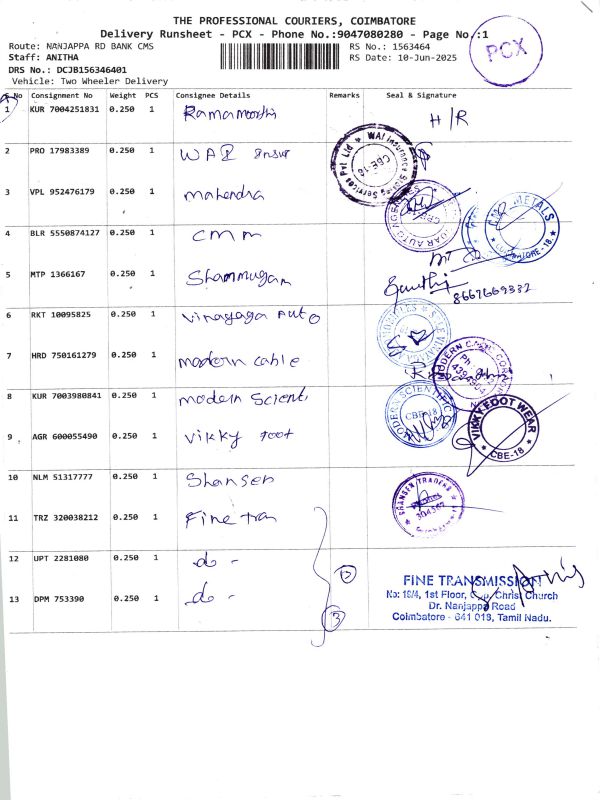 THE PROFESSIONAL COURIERS, COIMBATORE
Delivery Runsheet - PCX - Phone No.:9047080280 - Page No.:1
Route: NANJAPPA RD BANK CMS
RS No.: 1563464
Staff: ANITHA
RS Date: 10-Jun-2025
DRS No.: DCJB156346401
Vehicle: Two Wheeler Delivery
PCX
S.No Consignment No Weight PCS Consignee Details Remarks Seal & Signature
1 KUR 7004251831 0.250 1 Ramamoorthi H/R
2 PRO 17983389 0.250 1 WAI Insur
3 VPL 952476179 0.250 1 mahendra
4 BLR 5550874127 0.250 1 cmm
5 MTP 1366167 0.250 1 Shanmugam 8667669332
6 RKT 10095825 0.250 1 vinayaga Auto
7 HRD 750161279 0.250 1 modern cable
8 KUR 7003980841 0.250 1 modern Scienti
MODERN SCIENTIFIC
CBE-18
9 AGR 600055490 0.250 1 vikky foot
VIKKY FOOT WEAR
CBE-18
10 NLM 51317777 0.250 1 Shansen
SHANSEN TRADERS
11 TRZ 320038212 0.250 1 Fine tran
12 UPT 2281080 0.250 1 -do-
13 DPM 753390 0.250 1 -do- 3
FINE TRANSMISSION
No: 18/4, 1st Floor, Opp, Christ Church
Dr. Nanjappa Road
Coimbatore - 641 018, Tamil Nadu.